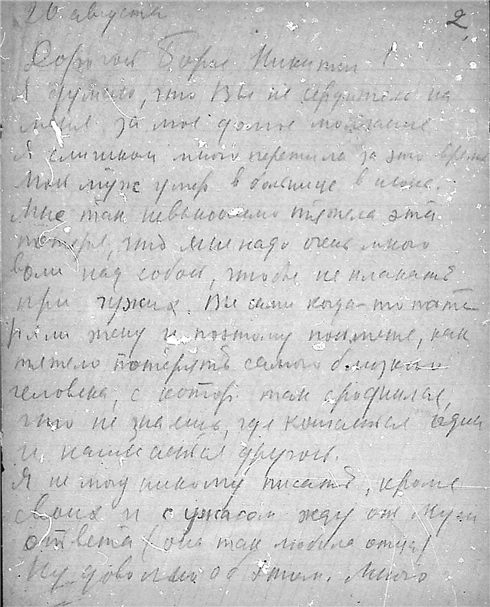 26 августа
2
Дорогой Борис Никитич!
Я думаю, что Вы не сердитесь на
меня за мое долгое молчание
Я слишком много пережила за это время
Мой муж умер в больнице в июне.
Мне так невыносимо тяжела эта
потеря, что мне надо очень много
воли над собой, чтобы не плакать
при чужих. Вы сами когда-то поте
ряли жену и поэтому поймете, как
тяжело потерять самого близкого
человека, с котор. так сроднился,
что не знаешь, где кончается один
и начинается другой.
Я не могу никому писать, кроме
своих и с ужасом жду от Муси
ответа (она так любила отца)
Ну довольно об этом. Много